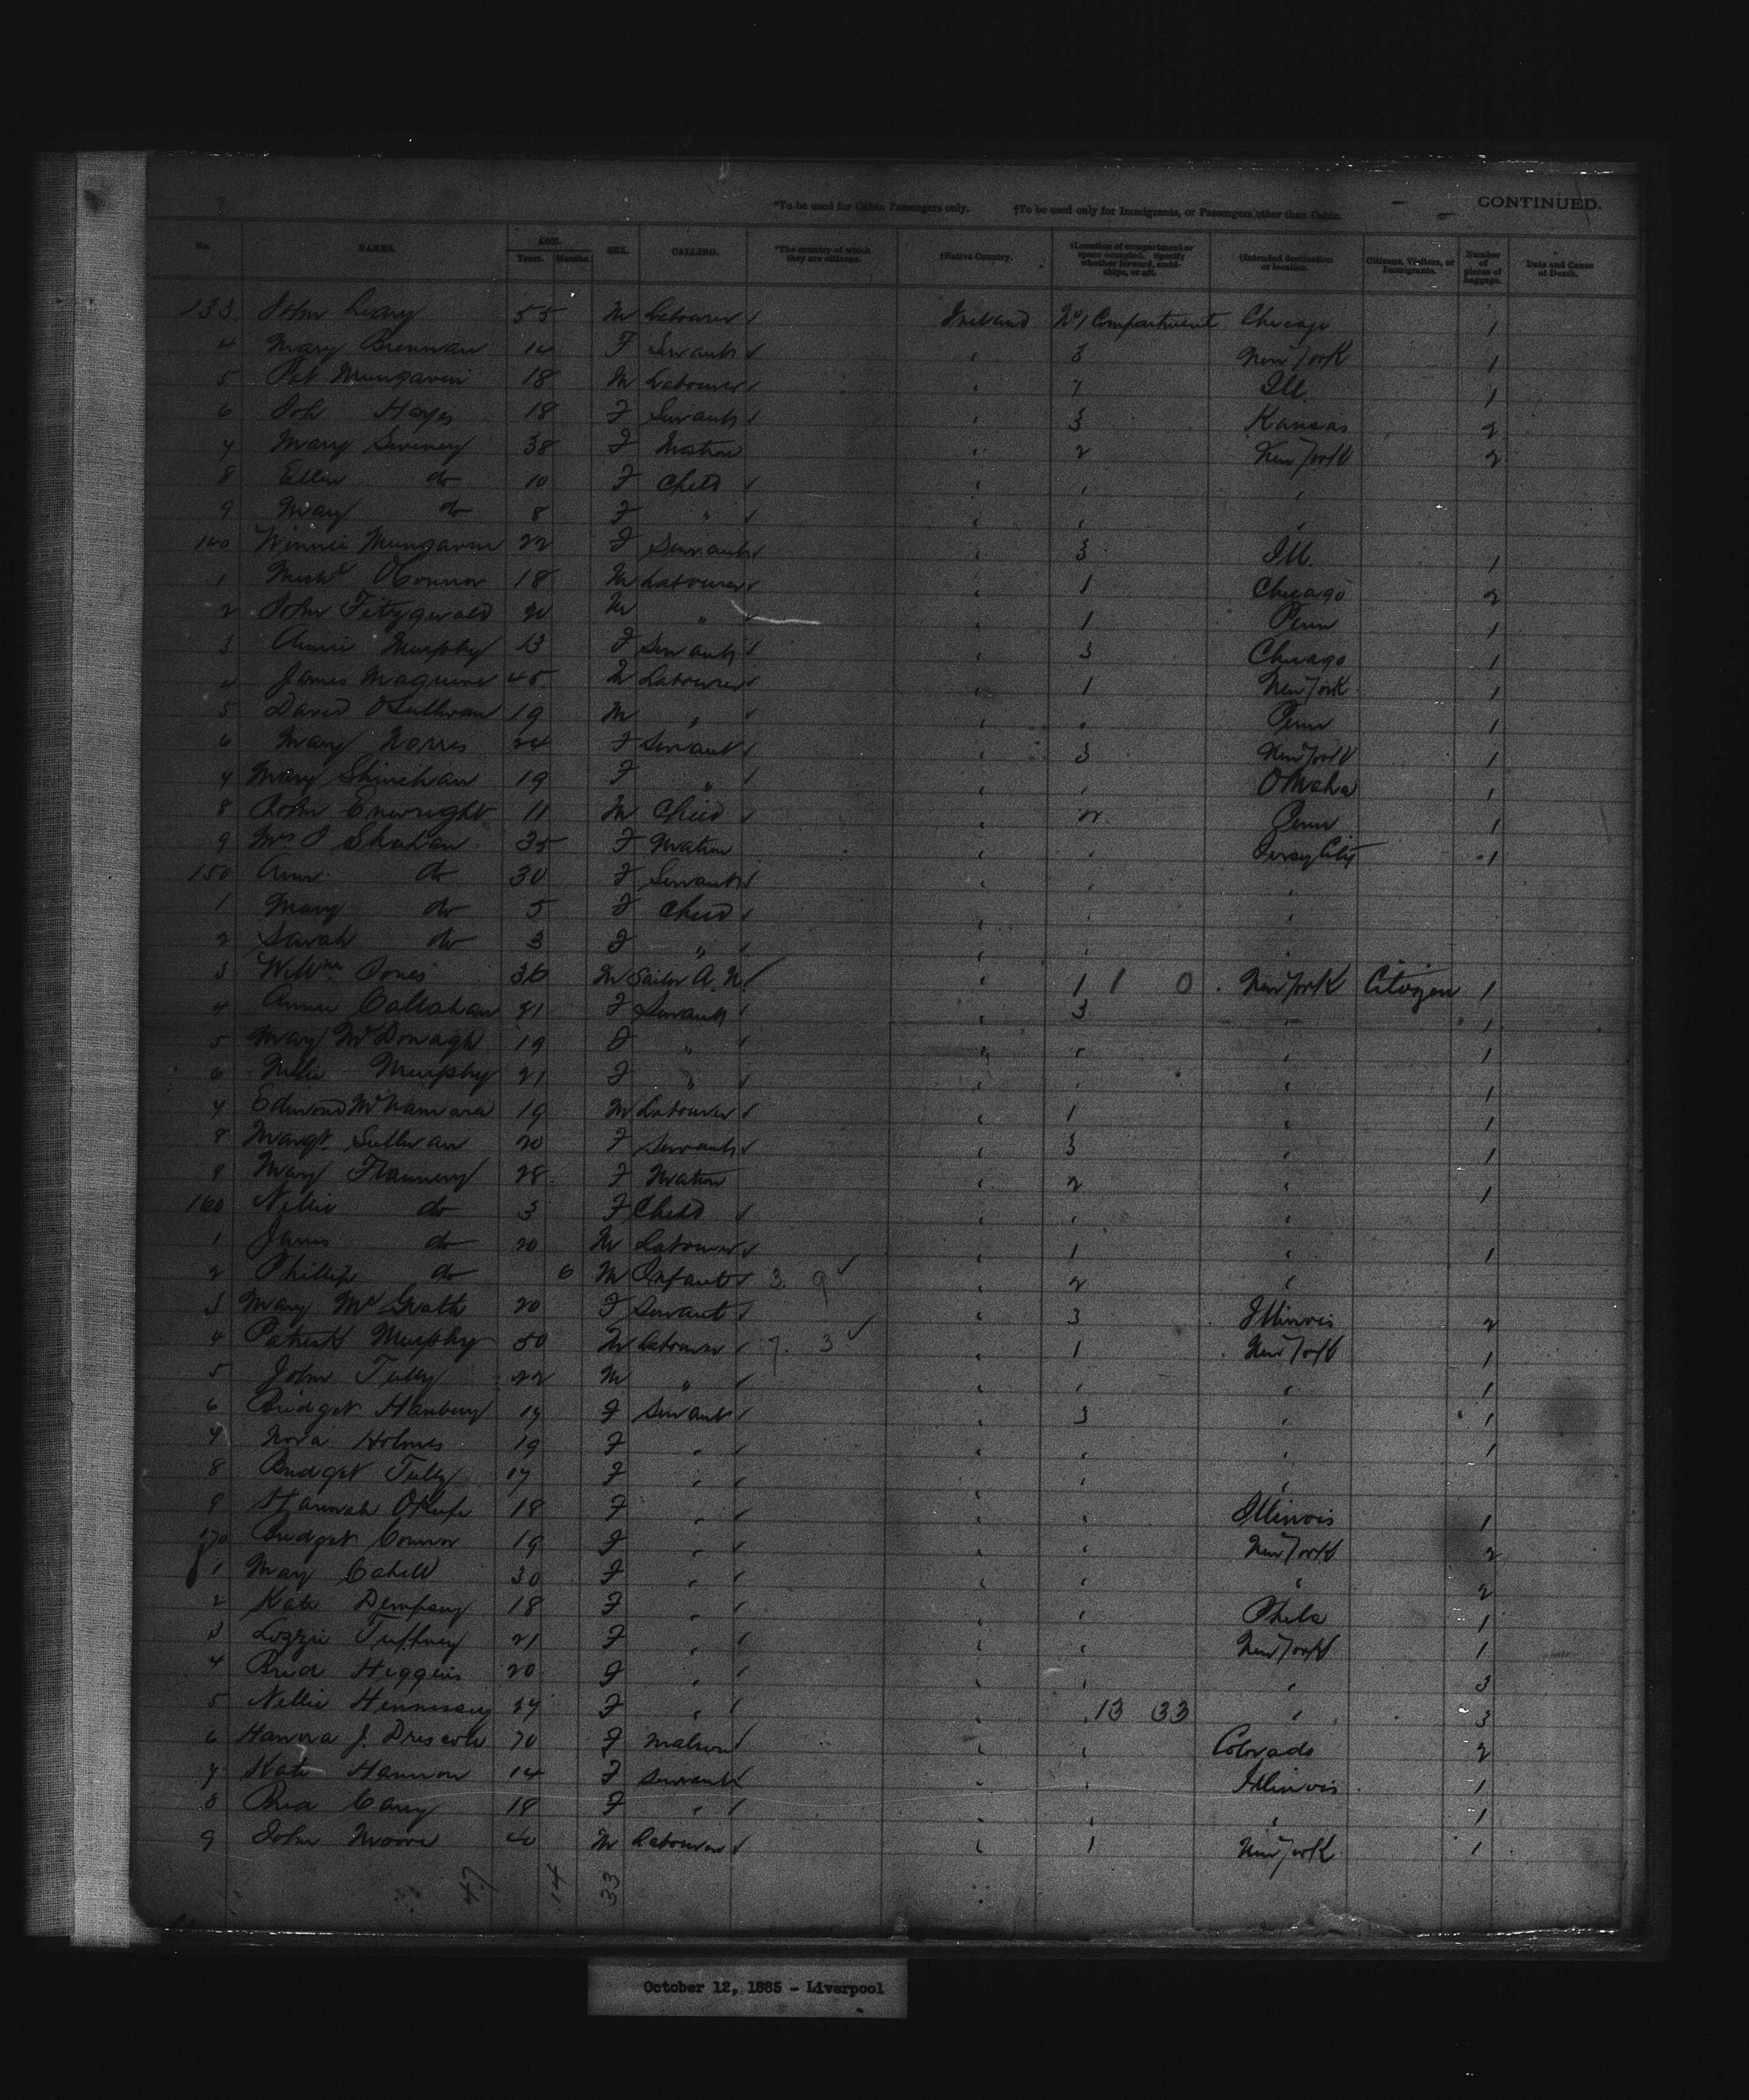 *To be used for Cabin Passengers only. †To be used only for Immigrants, or Passengers other than Cabin. CONTINUED.
No. NAMES. AGE. Years. Months. SEX. CALLING. *The country of which they are citizens. †Native Country. †Location of compartment or space occupied. Specify whether forward, amidships, or aft. †Intended destination or location. Citizens, Visitors, or Immigrants. Number of pieces of baggage. Date and Cause of Death.
133 John Leary 55 M Labourer Ireland No 1 Compartment Chicago 1
4 Mary Brennan 14 F Servant " 3 New York 1
5 Pat Mungavin 18 M Labourer " 1 Ill. 1
6 Joh Hayes 18 F Servant " 3 Kansas 2
7 Mary Sweeney 38 F Matron " 2 New York 2
8 Ellen do 10 F Child " " "
9 Mary do 8 F " " " "
140 Winnie Mungavin 22 F Servant " 3 Ill. 1
1 Michl O'Connor 18 M Labourer " 1 Chicago 2
2 John Fitzgerald 20 M " " 1 Penn 1
3 Annie Murphy 13 F Servant " 3 Chicago 1
4 James Maguire 45 M Labourer " 1 New York 1
5 David O'Sullivan 19 M " " " Penn 1
6 Mary Norris 24 F Servant " 3 New York 1
7 Mary Shinehan 19 F " " " Omaha 1
8 John Enwright 11 M Child " 2 Penn 1
9 Mrs J Shahan 35 F Matron " " Jersey City 1
150 Ann do 30 F Servant " " "
1 Mary do 5 F Child " " "
2 Sarah do 3 F " " " "
3 Willm Jones 36 M Sailor A. N. " 1 1 0 New York Citizen 1
4 Annie Callahan 21 F Servant " 3 " 1
5 Mary McDonagh 19 F " " " " 1
6 Murphy 21 F " " " " 1
7 Edmond McNamara 19 M Labourer " 1 " 1
8 Margt Sullivan 20 F Servant " 3 " 1
9 Mary Flannery 28 F Matron " 2 " 1
160 Nellie do 3 F Child " " "
1 James do 20 M Labourer " 1 " 1
2 Phillip do 6 M Infant 3. 9 " 2 "
3 Mary McGrath 20 F Servant " 3 Illinois 2
4 Patrick Murphy 50 M Labourer 7. 3 " 1 New York 1
5 John Tully 22 M " " " " 1
6 Bridget Hanbury 17 F Servant " 3 " 1
7 Nora Holmes 19 F " " " " 1
8 Bridget Tully 17 F " " " "
9 Hannah O'Keefe 18 F " " " Illinois 1
170 Bridget Connor 19 F " " " New York 2
1 Mary Cahill 30 F " " " " 2
2 Kate Dempsey 18 F " " " Phila 1
3 Lizzie Tuffney 21 F " " " New York 1
4 Brid Higgins 20 F " " " " 3
5 Nellie Hennessy 27 F " " " 13 33 " 3
6 Hanora J. Driscoll 70 F Matron " " Colorado 2
7 Kate Hannon 14 F Servant " " Illinois 1
8 Brid Carey 18 F " " " " 1
9 John Moore 40 M Labourer " 1 New York 1
47 14 33
October 12, 1885 - Liverpool